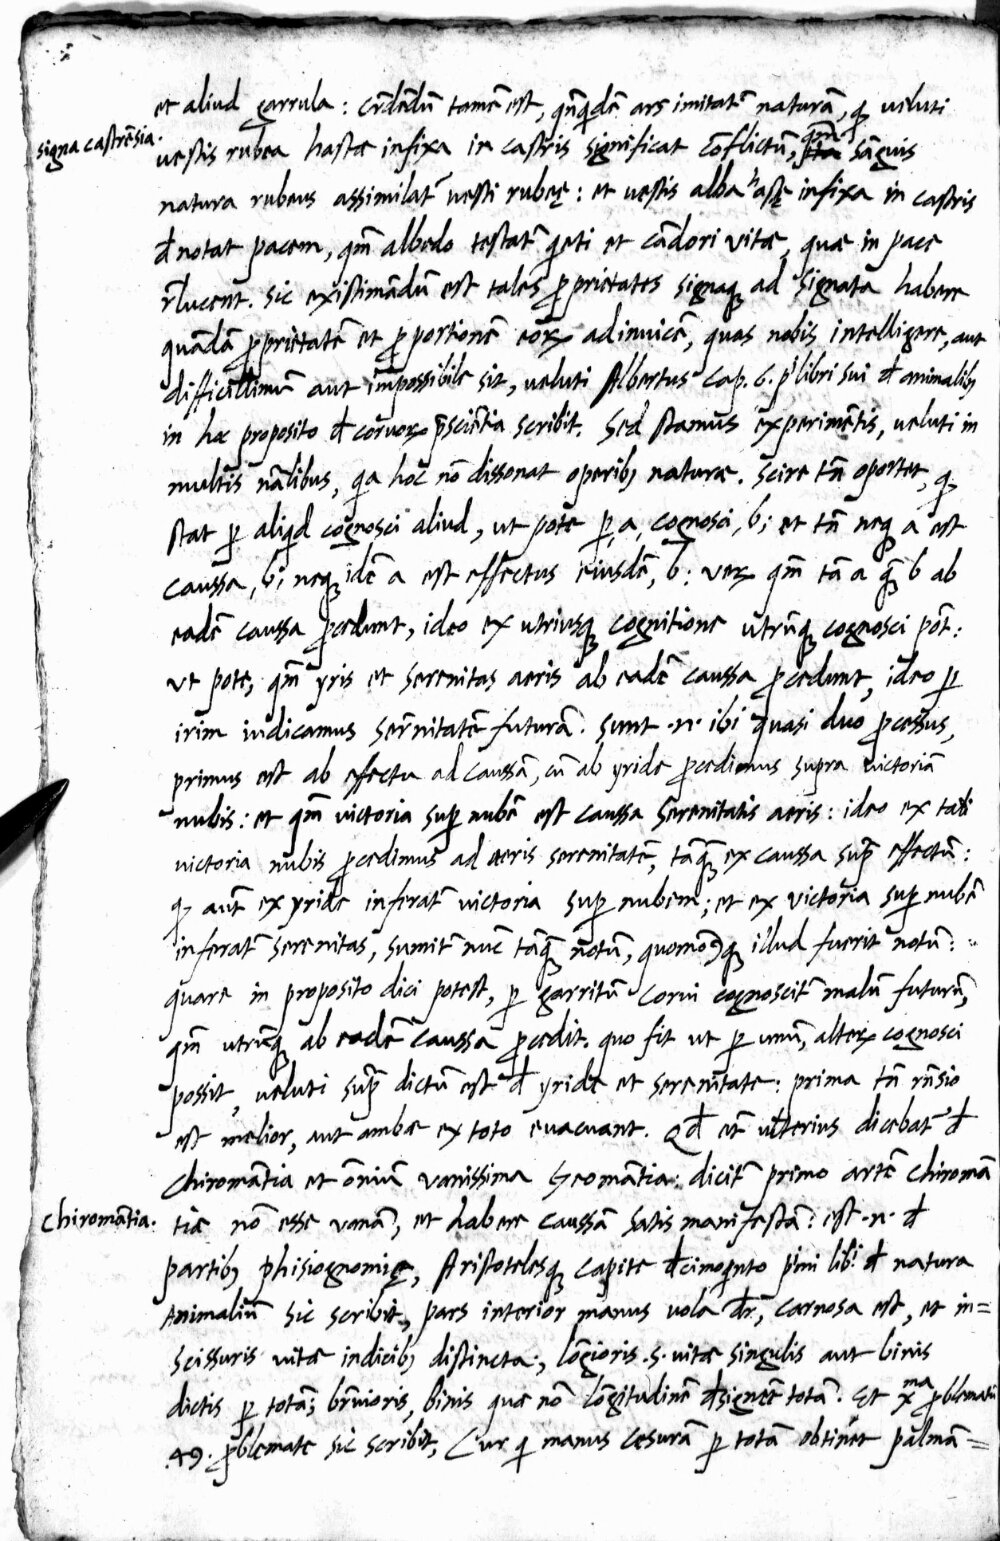 et aliud garrula: crēdendū tamē est, qn̄quidē ars imitat̄ naturā, q; veluti
signa castrēsia.
vestis rubea hastæ infixa in castris significat cōflictū, qm̄ sāguis
natura rubeus assimilat̄ vesti rubeę: et vestis alba hastę infixa in castris
d̄notat pacem, qm̄ albedo testat̄ q̄eti et cādori vitæ, quæ in pace
r̄lucent. Sic existimādū est tales ꝓprietates signaq; ad signata habere
quādā ꝓprietatē et ꝓportionē eoꝝ adinuicē, quas nobis intelligere, aut
difficillimū aut impossibile sit, veluti Albertus cap. 6. pⁱ libri sui d̄ animalibꝫ
in hoc proposito d̄ corvoꝝ p̄sciētia scribit. Sed stamus experimētis, veluti in
multis nālibus, qa hoc nō dissonat operibꝫ naturæ. Scire tn̄ oportet, q;
stat ꝑ aliqd cognosci aliud, ut pote ꝑ, a, cognosci, b; et tn̄ neq; a est
caussa, b; neq; idē a est effectus eiusdē, b: veꝝ qm̄ tā a q̄; b ab
eadē caussa ꝓcedunt, ideo ex utriusq; cognitione utrūq; cognosci pōt:
ut pote, qm̄ yris et serenitas aeris ab eadē caussa ꝓcedunt, ideo ꝑ
irim iudicamus ser̄nitatē futurā. Sunt .n. ibi quasi duo ꝓcessus,
primus est ab effectu ad caussā, cū ab yride ꝓcedimus supra victoriā
nubis: et qm̄ victoria suꝑ nubē est caussa serenitatis aeris: ideo ex tali
victoria nubis ꝓcedimus ad aeris serenitatē, tāq; ex caussa sup̄ effectū:
q; aut̄ ex yride inferat̄ victoria suꝑ nubem; et ex victoria suꝑ nubē
inferat̄ serenitas, sumit̄ nūc tāq; notū, quomōcūq; illud fuerit notū:
quare in proposito dici potest, ꝑ garritū corvi cognoscit̄ malū futurū,
qm̄ utrūq; ab eadē caussa ꝓcedit. quo fit ut ꝑ unū, alteꝝ cognosci
possit, veluti sup̄ dictū est d̄ yride et serenitate: prima tn̄ rn̄sio
est melior, aut ambæ ex toto evacuant. Qd̄ et̄ ulterius dicebat̄ d̄
Chiromātia et ōniū vanissima Geomātia: dicit̄ primo artē Chiromā
Chiromātia.
tiæ nō esse vanā, et habere caussā satis manifestā: est .n. d̄
partibꝫ phisiognomię, Aristotelesq; capite d̄cimoq̄nto p̄mi libⁱ d̄ natura
Animaliū sic scribit, pars interior manus vola dr̄, carnosa est, et in=
scissuris vitæ indicibꝫ distincta, lōgioris .s. vitæ singulis aut binis
dictis ꝑ totā; br̄vioris, binis quæ nō lōgitudinē d̄signēt totā. Et xᵐᵃ ꝓblematū
49. ꝓblemate sic scribit, Cur qi manus cesurā ꝑ totā obtinēt palmā=